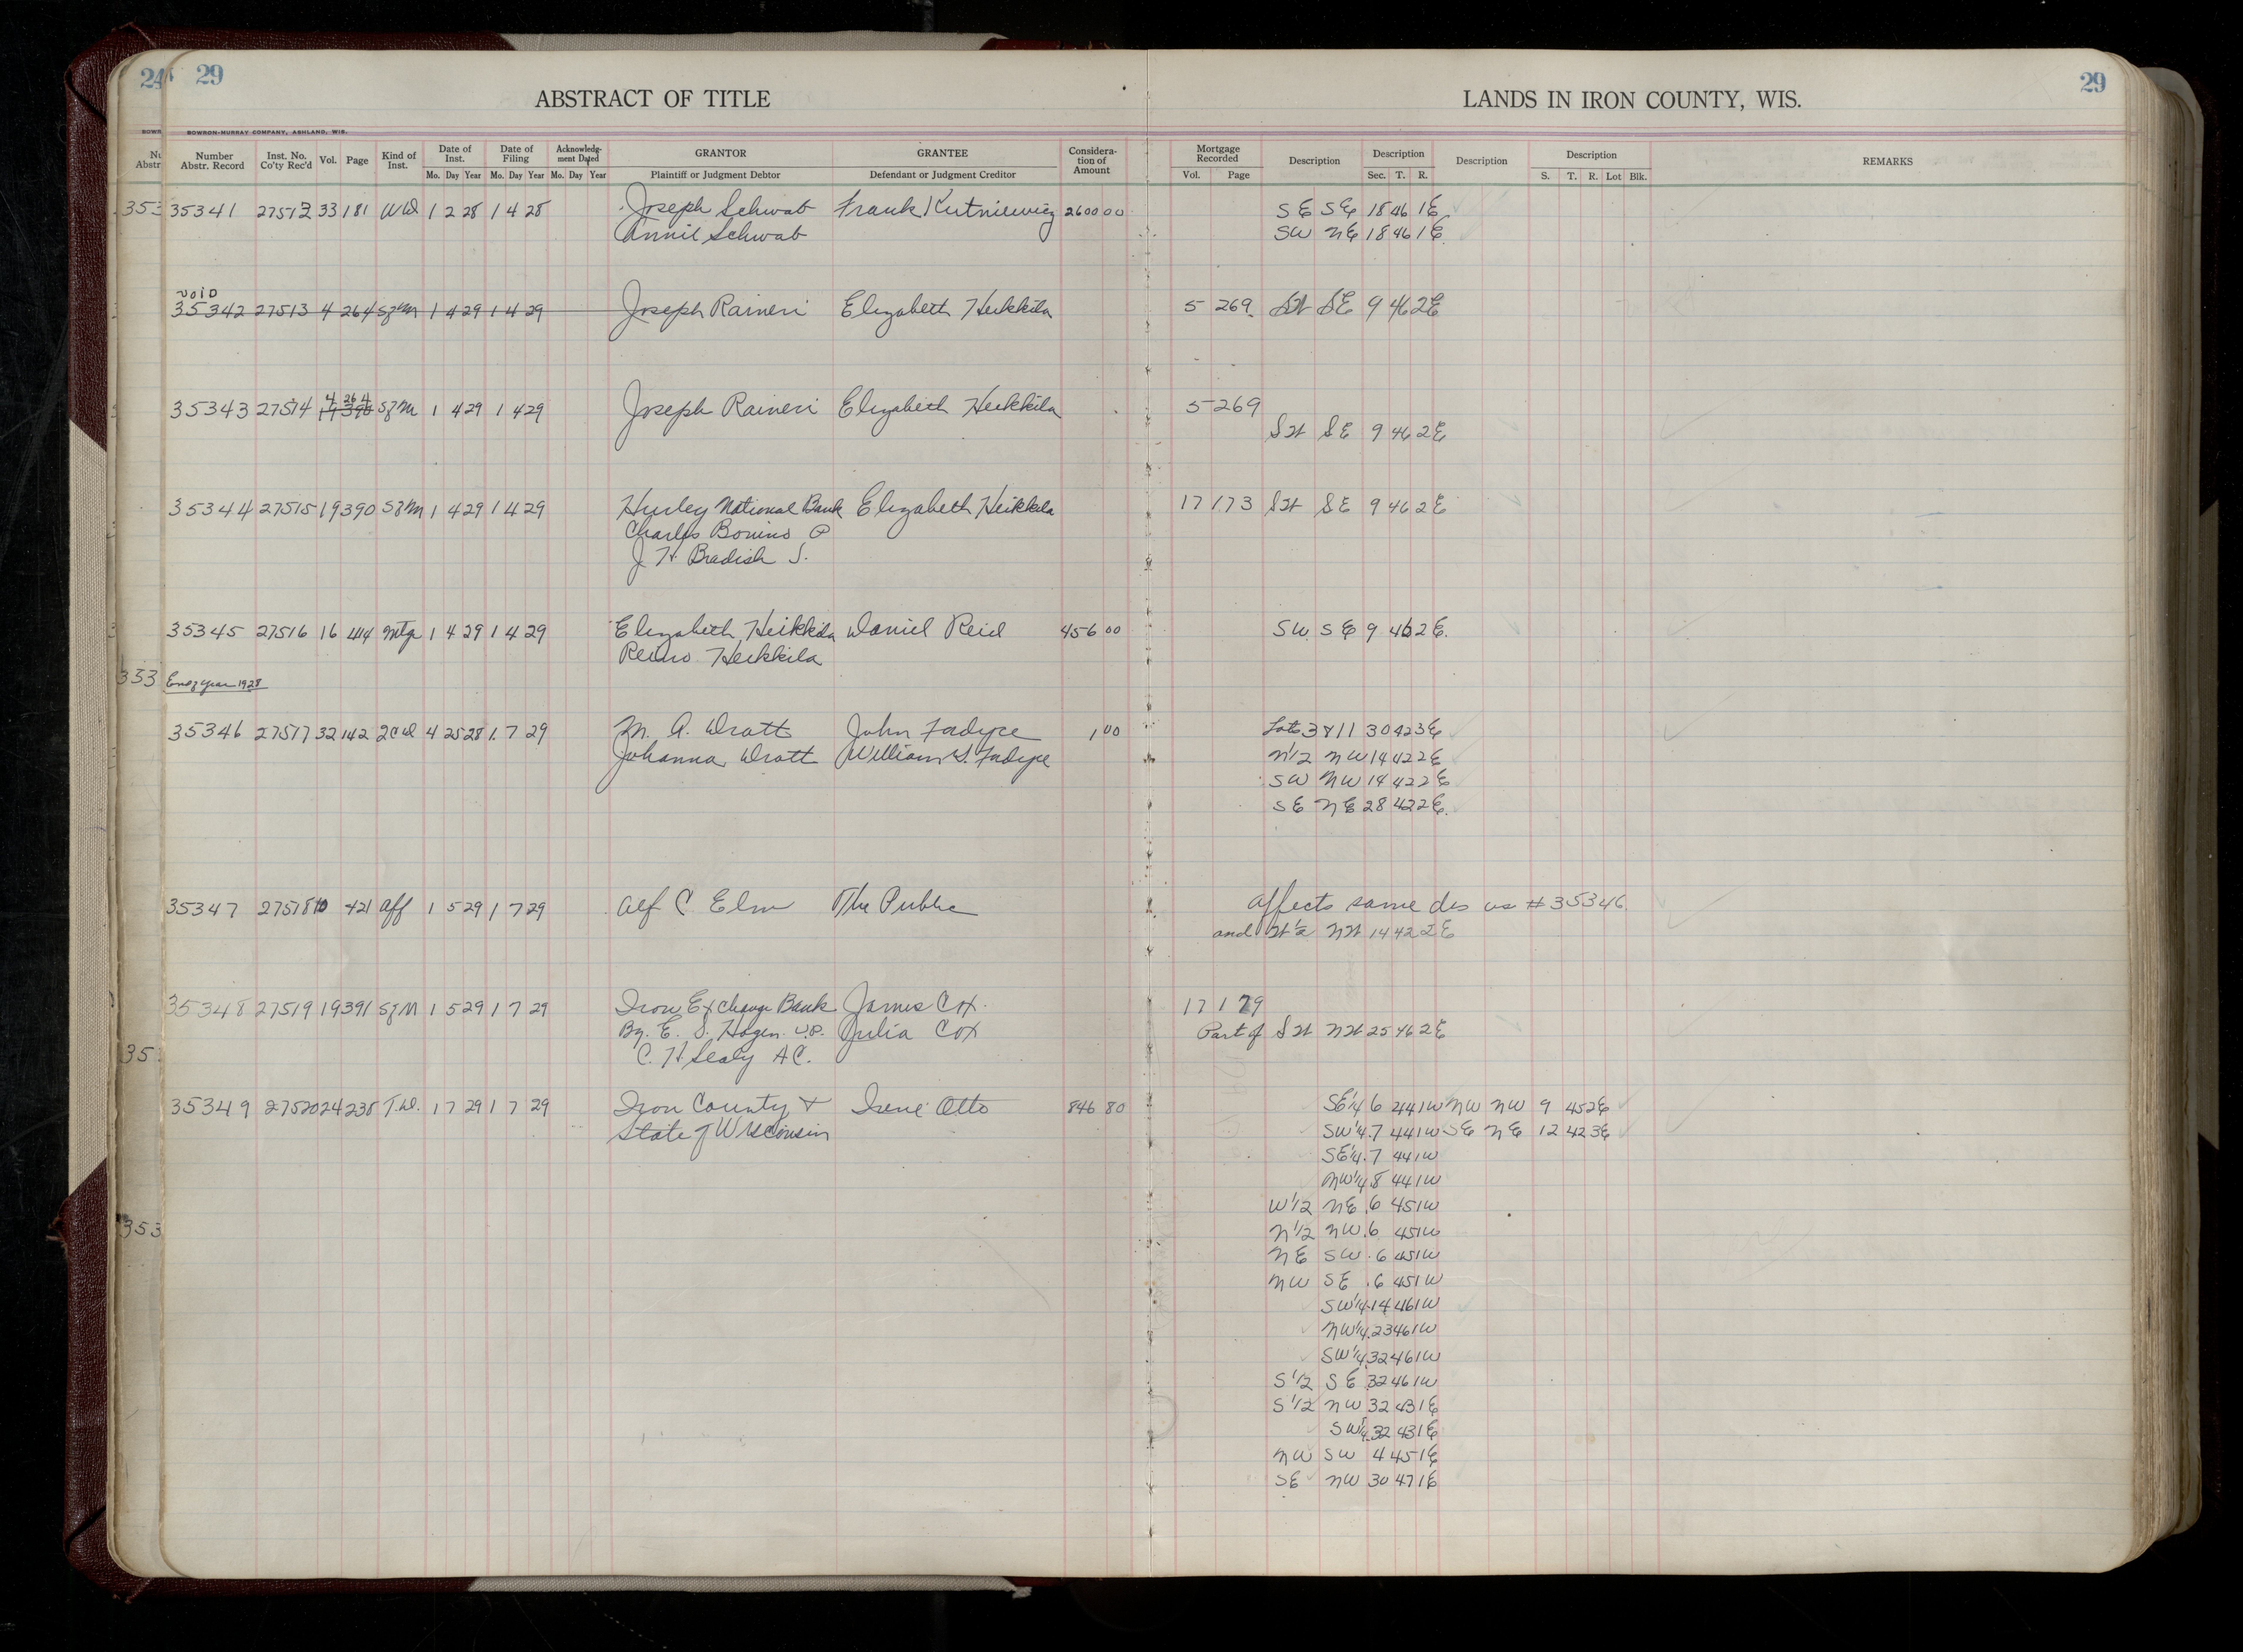 24 29
29
ABSTRACT OF TITLE
LANDS IN IRON COUNTY, WIS.
BOWRON-MURRAY COMPANY, ASHLAND, WIS.
Number Abstr. Record Inst. No. Co'ty Rec'd Vol. Page Kind of Inst. Date of Inst. Date of Filing Acknowledg-ment Dated GRANTOR GRANTEE Considera-tion of Amount Mortgage Recorded Description Description Description Description REMARKS
Mo. Day Year Mo. Day Year Mo. Day Year Plaintiff or Judgment Debtor Defendant or Judgment Creditor Vol. Page Sec. T. R. S. T. R. Lot Blk.
35341 27512 33 181 WD 1 2 28 1 4 28 Joseph Schwab Frank Kutniewicz 2600 00 SE SE 18 46 1E
Annie Schwab SW NE 18 46 1E
void
35342 27513 4 264 Sfm 1 4 29 1 4 29 Joseph Raineri Elizabeth Heikkila 5 269 SW SE 9 46 2E
4 264
35343 27514 19 390 Sfm 1 4 29 1 4 29 Joseph Raineri Elizabeth Heikkila 5 269
SW SE 9 46 2E
35344 27515 19 390 Sfm 1 4 29 1 4 29 Hurley National Bank Elizabeth Heikkila 17 173 SW SE 9 46 2E
Charles Bonino P
J H Bradish S.
35345 27516 16 414 Mtg 1 4 29 1 4 29 Elizabeth Heikkila Daniel Reid 456 00 SW SE 9 46 2E.
Reino Heikkila
353 End of year 1928
35346 27517 32 142 2CD 4 25 28 1 7 29 M. A. Wratt John Fadyce 1 00 Lots 3 & 11 30 42 3E
Johanna Wratt William S. Fadyce N1/2 NW 14 42 2E
SW NW 14 42 2E
SE NE 28 42 2E.
35347 27518 10 421 Aff 1 5 29 1 7 29 Alf C Elm The Public Affects same des as #35346
and W1/2 NW 14 42 2E
35348 27519 19 391 SfM 1 5 29 1 7 29 Iron Exchange Bank James Cox 17 179
By. E. S. Hogen V.P. Julia Cox Part of SW NW 25 46 2E
C. H Sealy A C.
35349 27520 24 238 T.D. 1 7 29 1 7 29 Iron County & Irene Otto 846 80 SE1/4 6 44 1W NW NW 9 45 2E
State of Wisconsin SW1/4 7 44 1W SE NE 12 42 3E
SE1/4 7 44 1W
NW1/4 8 44 1W
W1/2 NE 6 45 1W
N1/2 NW 6 45 1W
NE SW 6 45 1W
NW SE 6 45 1W
SW1/4 14 46 1W
NW1/4 23 46 1W
SW1/4 32 46 1W
S1/2 SE 32 46 1W
S1/2 NW 32 43 1E
SW1/4 32 43 1E
NW SW 4 45 1E
SE NW 30 47 1E